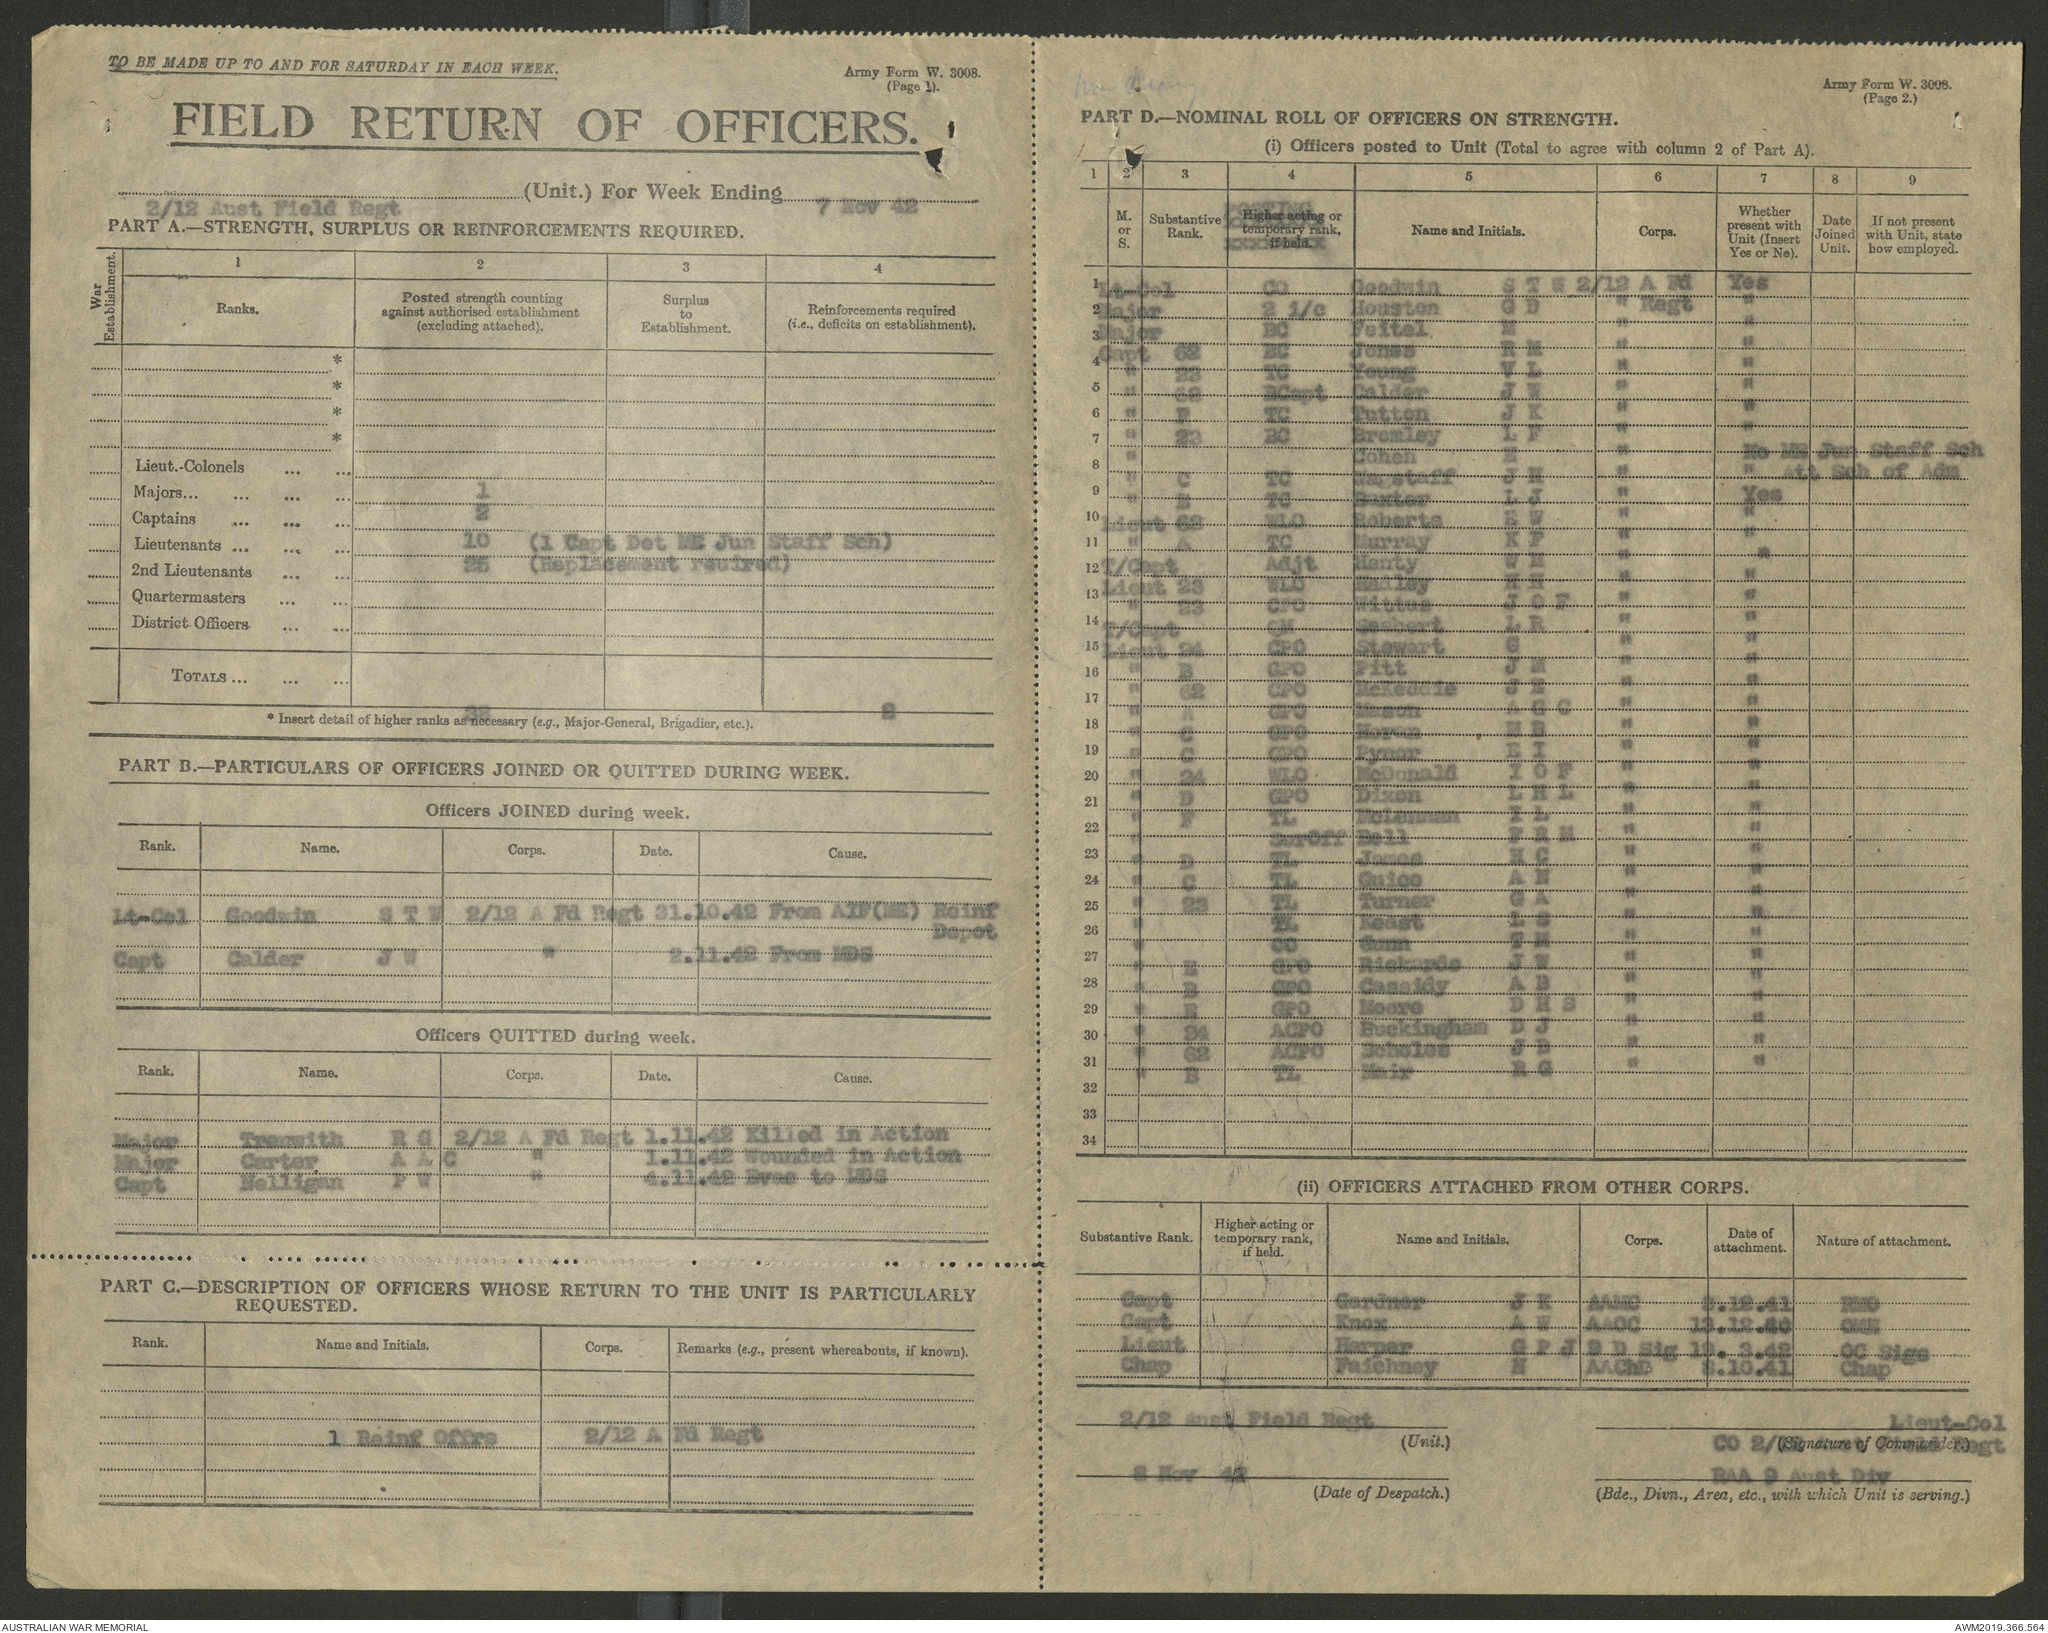 TO BE MADE UP TO AND FOR SATURDAY IN EACH WEEK.
Army Form W. 3008.
(Page 1).
FIELD RETURN OF OFFICERS.
(Unit.) For Week Ending
2/12 Aust Field Regt 7 Nov 42
PART A.—STRENGTH, SURPLUS OR REINFORCEMENTS REQUIRED.
War Establishment.
1 2 3 4
Ranks.
Posted strength counting
against authorised establishment
(excluding attached).
Surplus
to
Establishment.
Reinforcements required
(i.e., deficits on establishment).
*
*
*
*
Lieut.-Colonels ... ...
Majors... ... ... ... 1
Captains ... ... ... 2
Lieutenants ... ... ... 10 (1 Capt Det ME Jun Staff Sch)
2nd Lieutenants ... ... 25 (Replacement reuired)
Quartermasters ... ...
District Officers ... ...
TOTALS ... ... ...
38 2
* Insert detail of higher ranks as necessary (e.g., Major-General, Brigadier, etc.).
PART B.—PARTICULARS OF OFFICERS JOINED OR QUITTED DURING WEEK.
Officers JOINED during week.
Rank. Name. Corps. Date. Cause.
Lt-Col Goodwin S T W 2/12 A Fd Regt 31.10.42 From AIF(ME) Reinf
Depot
Capt Calder J W " 2.11.42 From MDS
Officers QUITTED during week.
Rank. Name. Corps. Date. Cause.
Major Trenwith R G 2/12 A Fd Regt 1.11.42 Killed in Action
Major Carter A A C " 1.11.42 Wounded in Action
Capt Nelligan P W " 4.11.42 Evac to MDS
PART C.—DESCRIPTION OF OFFICERS WHOSE RETURN TO THE UNIT IS PARTICULARLY
REQUESTED.
Rank. Name and Initials. Corps. Remarks (e.g., present whereabouts, if known).
1 Reinf Offrs 2/12 A Fd Regt
War Diary
Army Form W. 3008.
(Page 2.)
PART D.—NOMINAL ROLL OF OFFICERS ON STRENGTH.
(i) Officers posted to Unit (Total to agree with column 2 of Part A).
1 2 3 4 5 6 7 8 9
M.
or
S.
Substantive
Rank.
POSTING
Higher acting or
temporary rank,
if held.
Name and Initials.
Corps.
Whether
present with
Unit (Insert
Yes or No).
Date
Joined
Unit.
If not present
with Unit, state
how employed.
1 Lt-Col CO Goodwin S T W 2/12 A Fd Yes
2 Major 2 i/c Houston G D " Regt "
3 Major BC Feitel M " "
4 Capt 62 BC Jones R M " "
" 23 TC Young V L " "
5 " 62 BCapt Calder J W " "
6 " F TC Tutten J K " "
7 " 23 BC Bromley L F " "
8 " Cohen E " No ME Jun Staff Sch
" C TC Wagstaff J H " " Att Sch of Adm
9 " E TC Baxter L J " Yes
10 Lieut 62 WLO Roberts E W " "
11 " A TC Murray K F " "
12 T/Capt Adjt Henty W M " "
13 Lieut 23 WLO Malley H H " "
" 23 CPO J O F " "
14 T/Capt QM L R " "
15 Lieut 24 CPO Stewart G " "
16 " B GPO Pitt J M " "
17 " 62 CPO McKeddie J E " "
18 " A GPO Mason A G C " "
19 " C GPO Moran H B " "
" C GPO Rymer E I " "
20 " 24 WLO McDonald I O F " "
21 " D GPO Dixon L H L " "
22 " F TL McLennan I L " "
" SurOff Bell F R M " "
23 " D TL James H C " "
24 " C TL Guice A N " "
25 " 23 TL Turner G A " "
26 " TL Keast L S " "
27 " Gunn T M " "
28 " E GPO Rickards J W " "
" B GPO Cassidy A B " "
29 " E GPO Moore D H S " "
30 " 24 ACPO Buckingham D J " "
31 " 62 ACPO Scholes J D " "
" B TL Mair R G
32
33
34
(ii) OFFICERS ATTACHED FROM OTHER CORPS.
Substantive Rank.
Higher acting or
temporary rank,
if held.
Name and Initials.
Corps.
Date of
attachment.
Nature of attachment.
Capt Gardner J K AAMC 3.12.41 RMO
Capt Knox A W AAOC 13.12.40 OME
Lieut Harper G P J 9 D Sig 19. 3.42 OC Sigs
Chap Faichney N AAChD 8.10.41 Chap
2/12 Aust Field Regt Lieut-Col
(Unit.) CO 2/12 Regt
(Signature of Commander.)
8 Nov 42 RAA 9 Aust Div
(Date of Despatch.) (Bde., Divn., Area, etc., with which Unit is serving.)
AUSTRALIAN WAR MEMORIAL
AWM2019.366.564